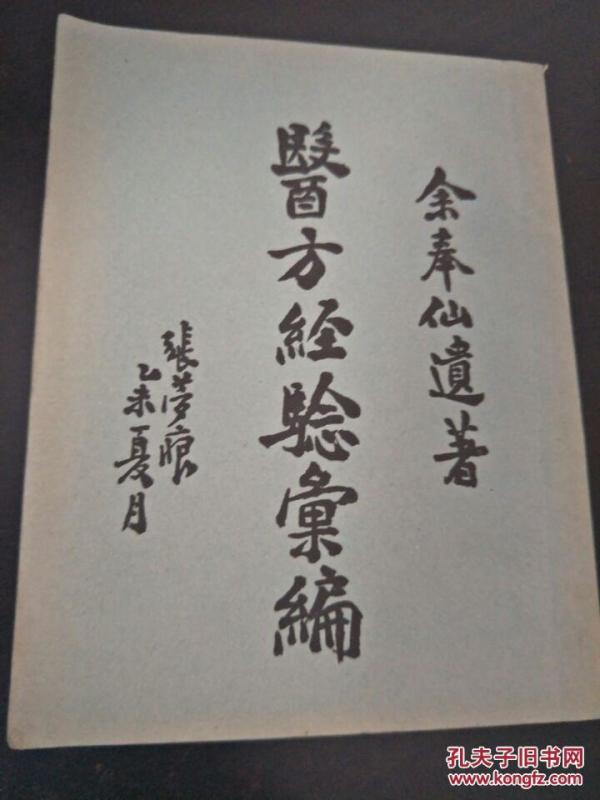 余奉仙遺著
醫方經驗彙編
張夢痕
乙未夏月
孔夫子旧书网
www.kongfz.com